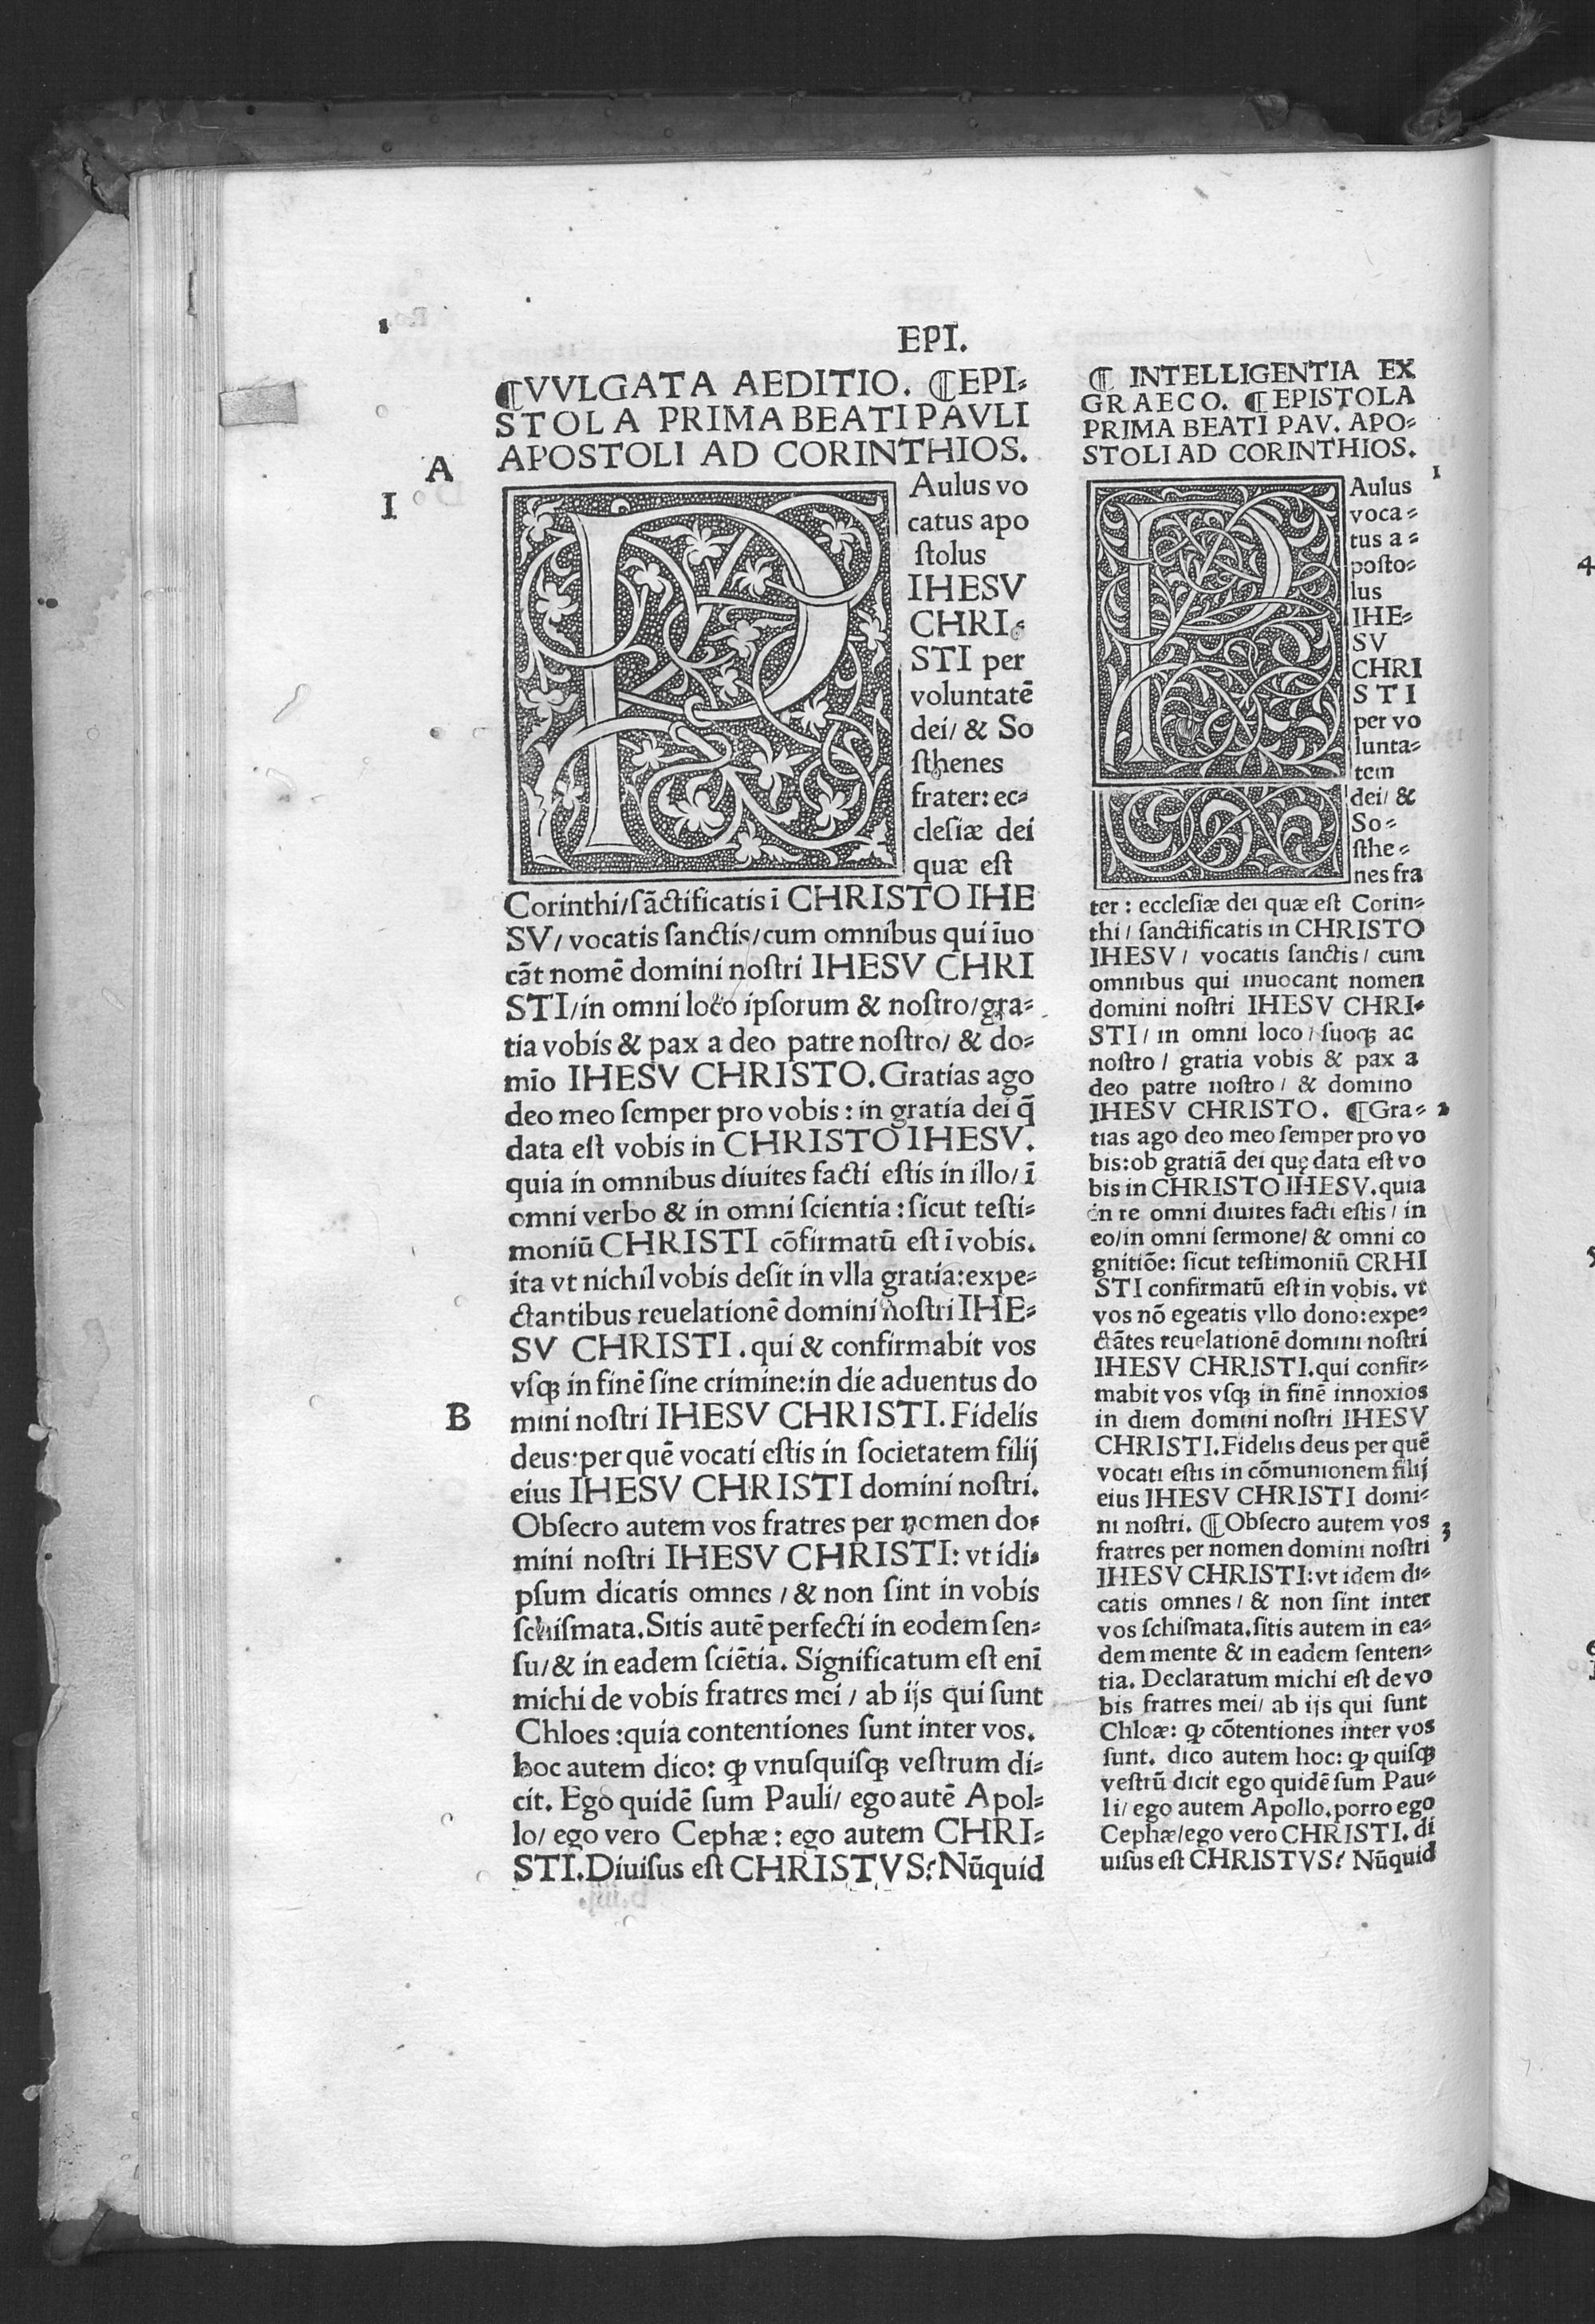 EPI.
¶VVLGATA AEDITIO. ¶EPI-
STOLA PRIMA BEATI PAVLI
APOSTOLI AD CORINTHIOS.
A
I
PAulus vo
catus apo
ſtolus
IHESV
CHRI-
STI per
voluntatē
dei/ & So
ſthenes
frater: ec-
cleſiæ dei
quæ eſt
Corinthi/ſāctificatis ī CHRISTO IHE
SV/ vocatis ſanctis/cum omnibus qui īuo
cāt nomē domini noſtri IHESV CHRI
STI/in omni loco ipſorum & noſtro/gra-
tia vobis & pax a deo patre noſtro/ & do-
mīo IHESV CHRISTO. Gratias ago
deo meo ſemper pro vobis: in gratia dei q̄
data eſt vobis in CHRISTO IHESV.
quia in omnibus diuites facti eſtis in illo/ ī
omni verbo & in omni ſcientia: ſicut teſti-
moniū CHRISTI cōfirmatū eſt ī vobis.
ita vt nichil vobis deſit in vlla gratia: expe-
ctantibus reuelationē domini noſtri IHE-
SV CHRISTI. qui & confirmabit vos
vſꝗ in finē ſine crimine: in die aduentus do
B
mini noſtri IHESV CHRISTI. Fidelis
deus: per quē vocati eſtis in ſocietatem filij
eius IHESV CHRISTI domini noſtri.
Obſecro autem vos fratres per nomen do-
mini noſtri IHESV CHRISTI: vt idi-
pſum dicatis omnes / & non ſint in vobis
ſchiſmata. Sitis autē perfecti in eodem ſen-
ſu/ & in eadem ſciētia. Significatum eſt enī
michi de vobis fratres mei / ab ijs qui ſunt
Chloes: quia contentiones ſunt inter vos.
hoc autem dico: ꝙ vnuſquiſꝗ veſtrum di-
cit. Ego quidē ſum Pauli/ ego autē Apol-
lo/ ego vero Cephæ: ego autem CHRI-
STI. Diuiſus eſt CHRISTVS? Nūquid
¶ INTELLIGENTIA EX
GRAECO. ¶EPISTOLA
PRIMA BEATI PAV. APO-
STOLI AD CORINTHIOS.
PAulus 1
voca-
tus a-
poſto-
lus
IHE-
SV
CHRI
STI
per vo
lunta-
tem
dei/ &
So-
ſthe-
nes fra
ter: eccleſiæ dei quæ eſt Corin-
thi/ ſanctificatis in CHRISTO
IHESV/ vocatis ſanctis/ cum
omnibus qui inuocant nomen
domini noſtri IHESV CHRI-
STI/ in omni loco/ ſuoꝗ ac
noſtro / gratia vobis & pax a
deo patre noſtro / & domino
IHESV CHRISTO. ¶Gra- 2
tias ago deo meo ſemper pro vo
bis: ob gratiā dei quę data eſt vo
bis in CHRISTO IHESV. quia
in re omni diuites facti eſtis / in
eo/in omni ſermone/ & omni co
gnitiōe: ſicut teſtimoniū CRHI
STI confirmatū eſt in vobis. vt
vos nō egeatis vllo dono: expe-
ctātes reuelationē domini noſtri
IHESV CHRISTI. qui confir-
mabit vos vſꝗ in finē innoxios
in diem domini noſtri IHESV
CHRISTI. Fidelis deus per quē
vocati eſtis in cōmunionem filij
eius IHESV CHRISTI domi-
ni noſtri. ¶Obſecro autem vos 3
fratres per nomen domini noſtri
IHESV CHRISTI: vt idem di-
catis omnes / & non ſint inter
vos ſchiſmata. ſitis autem in ea-
dem mente & in eadem ſenten-
tia. Declaratum michi eſt de vo
bis fratres mei/ ab ijs qui ſunt
Chloæ: ꝙ cōtentiones inter vos
ſunt. dico autem hoc: ꝙ quiſꝗ
veſtrū dicit ego quidē ſum Pau-
li/ ego autem Apollo. porro ego
Cephæ/ego vero CHRISTI. di
uiſus eſt CHRISTVS? Nūquid